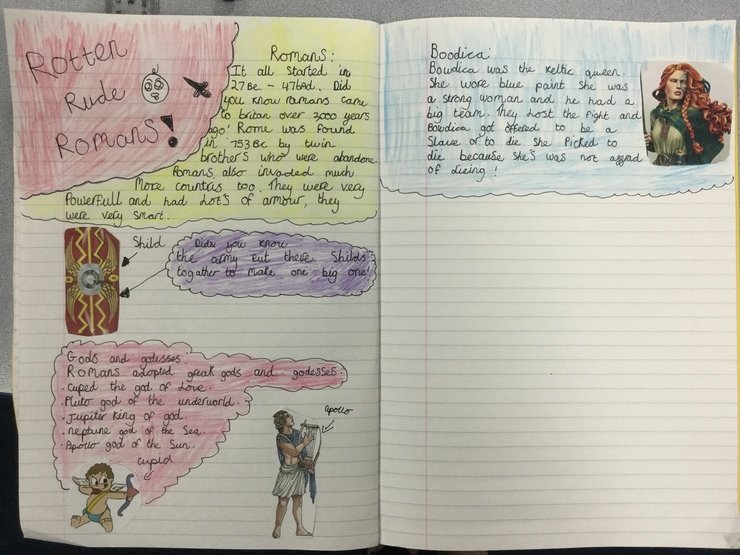 Rotten
Rude
Romans!
Romans:
It all started in
27Bc - 476Ad. Did
you know romans came
to britan over 3000 years
ago! Rome was found
in 753Bc by twin
brother's who were abandone
Romans also invaded much
More countras too. They were very
Powerfull and had Lot's of armour, they
were very smart.
Shild
Dids you know
the army Put there Shilds
together to make one big one!
Gods and godesses:
Romans adopted greak gods and godesses.
·cuped the god of Love.
·Pluto god of the underworld.
·Jupiter King of god.
·neptune god of the Sea.
·Apollo god of the Sun.
cupid
Apollo
Boodica:
Bowdica was the keltic queen.
She wore blue paint She was
a strong woman and he had a
big team. They Lost the fight and
Bowdica got offered to be a
Slave or to die She Picked to
die because She's was not
of dieing!